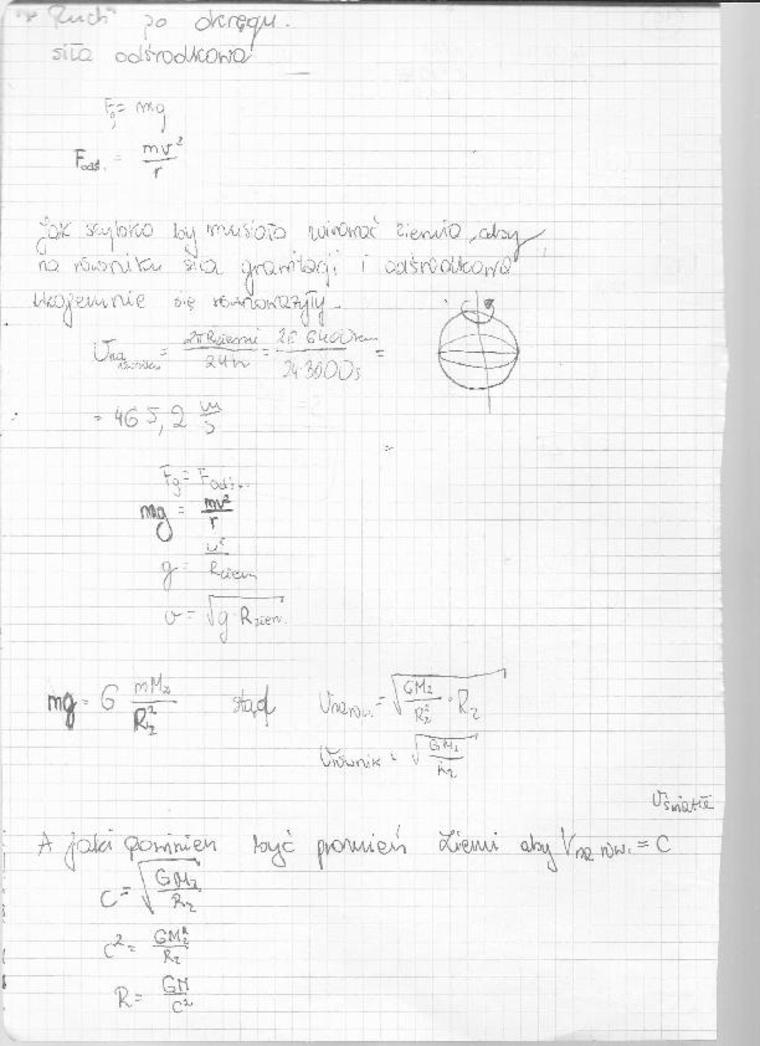 "Ruch" po okręgu.
siła odśrodkowa
Fg = mg
Fodś. = mv²/r
Jak szybko by musiała wirować ziemia, aby
na równiku siła grawitacji i odśrodkowa
wzajemnie się równoważyły.
Vna równiku = 2πRziemi/24h = 2π 6400km/24·3600s =
= 465,2 m/s
Fg = Fodś.
mg = mv²/r
g = v²/Rziem
v = √(g·Rziem.)
mg = G mMz/Rz² stąd Vna równ. = √(GMz/Rz² · Rz)
Vrównik = √(GMz/Rz)
Vświatła
A jaki powinien być promień Ziemi aby Vna rów. = C
C = √(GMz/Rz)
C² = GMz/Rz
R = GM/C²